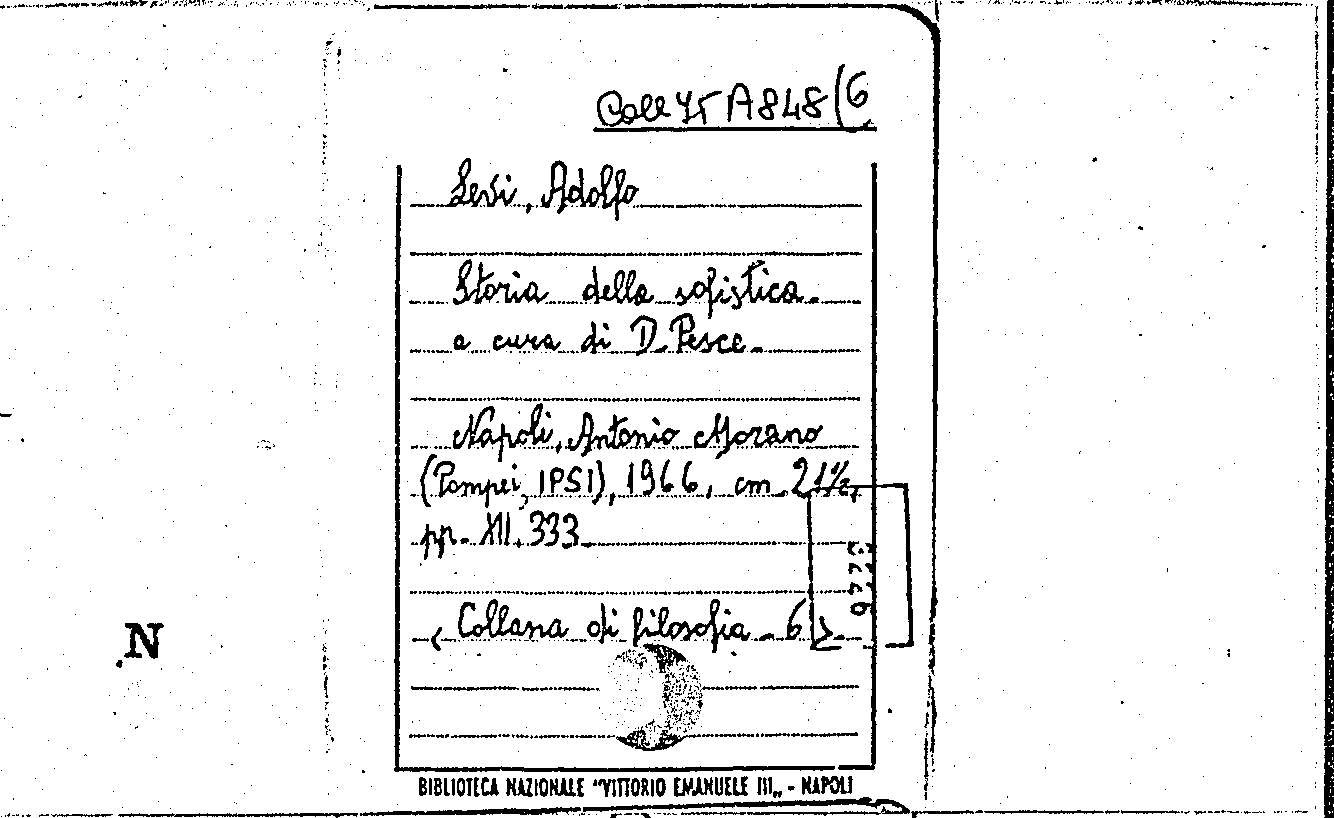 Coll 75 A 848 (6
Levi, Adolfo
Storia della sofistica.
a cura di D. Pesce.
Napoli, Antonio Morano
(Pompei, IPSI), 1966, cm. 21½,
pp. XII. 333.
(Collana di filosofia. 6).
N
BIBLIOTECA NAZIONALE "VITTORIO EMANUELE III„ - NAPOLI